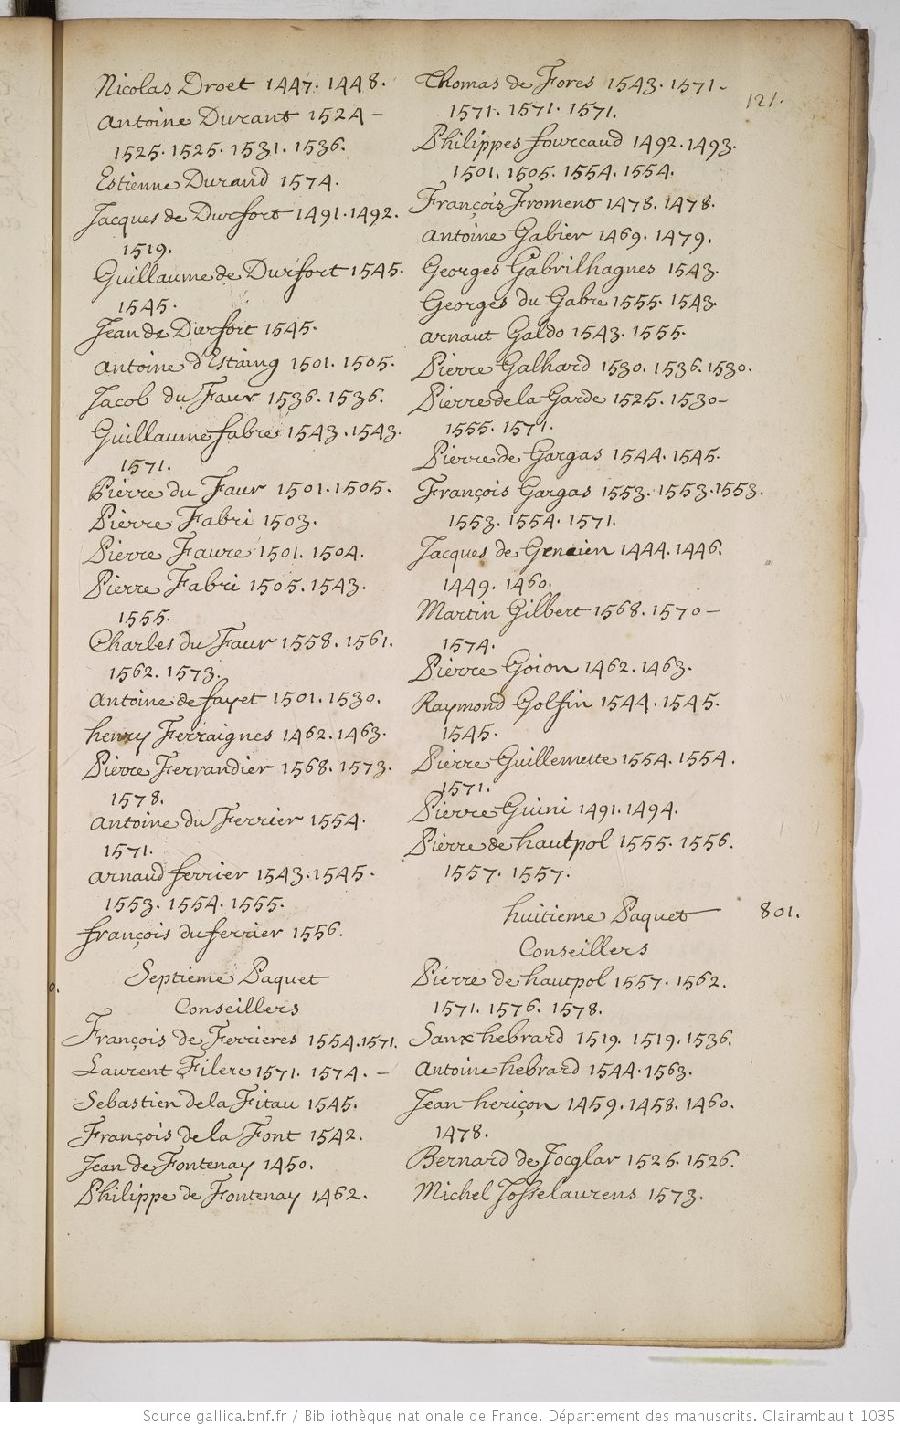 Nicolas Droet 1447. 1448.
Antoine Durant 1524 –
1525. 1525. 1531. 1536.
Estienne Durand 1574.
Jacques de Durfort 1491. 1492.
1519.
Guillaume de Durfort 1545.
1545.
Jean de Durfort 1545.
Antoine d'Estaing 1501. 1505.
Jacob du Faur 1536. 1536.
Guillaume fabre 1543. 1543.
1571.
Pierre du Faur 1501. 1505.
Pierre Fabri 1503.
Pierre Faure 1501. 1504.
Pierre Fabri 1505. 1543.
1555.
Charles du Faur 1558. 1561.
1562. 1573.
Antoine de fayet 1501. 1530.
henry Ferraignes 1462. 1463.
Pierre Ferrandier 1568. 1573.
1578.
Antoine du Ferrier 1554.
1571.
arnaud ferrier 1543. 1545.
1553. 1554. 1555.
françois du ferrier 1556.
Septieme Paquet
Conseillers
François de Ferrieres 1554. 1571.
Laurent Filere 1571. 1574. –
Sebastien de la Fitau 1545.
François de la Font 1542.
Jean de Fontenay 1450.
Philippe de Fontenay 1462.
121.
Thomas de Fores 1543. 1571 –
1571. 1571. 1571.
Philippes fourcaud 1492. 1493.
1501. 1505. 1554. 1554.
François Froment 1478. 1478.
Antoine Gabier 1469. 1479.
Georges Gabrilhagnes 1543.
Georges du Gabre 1555. 1543.
arnaut Galdo 1543. 1555.
Pierre Galhard 1530. 1536. 1530.
Pierre de la Garde 1525. 1530 –
1555. 1571.
Pierre de Gargas 1544. 1545.
François Gargas 1553. 1553. 1553.
1553. 1554. 1571.
Jacques de 1444. 1446.
1449. 1460.
Martin Gilbert 1568. 1570 –
1574.
Pierre Goion 1462. 1463.
Raymond Golfin 1544. 1545.
1545.
Pierre Guillemette 1554. 1554.
1571.
Pierre Guini 1491. 1494.
Pierre de hautpol 1555. 1556.
1557. 1557.
huitieme Paquet 801.
Conseillers
Pierre de hautpol 1557. 1562.
1571. 1576. 1578.
Sanx hebrard 1519. 1519. 1536.
Antoine hebrard 1544. 1563.
Jean heriçon 1459. 1458. 1460.
1478.
Bernard de Jocglar 1525. 1526.
Michel Josselaurens 1573.
Source gallica.bnf.fr / Bibliothèque nationale de France. Département des manuscrits. Clairambault 1035